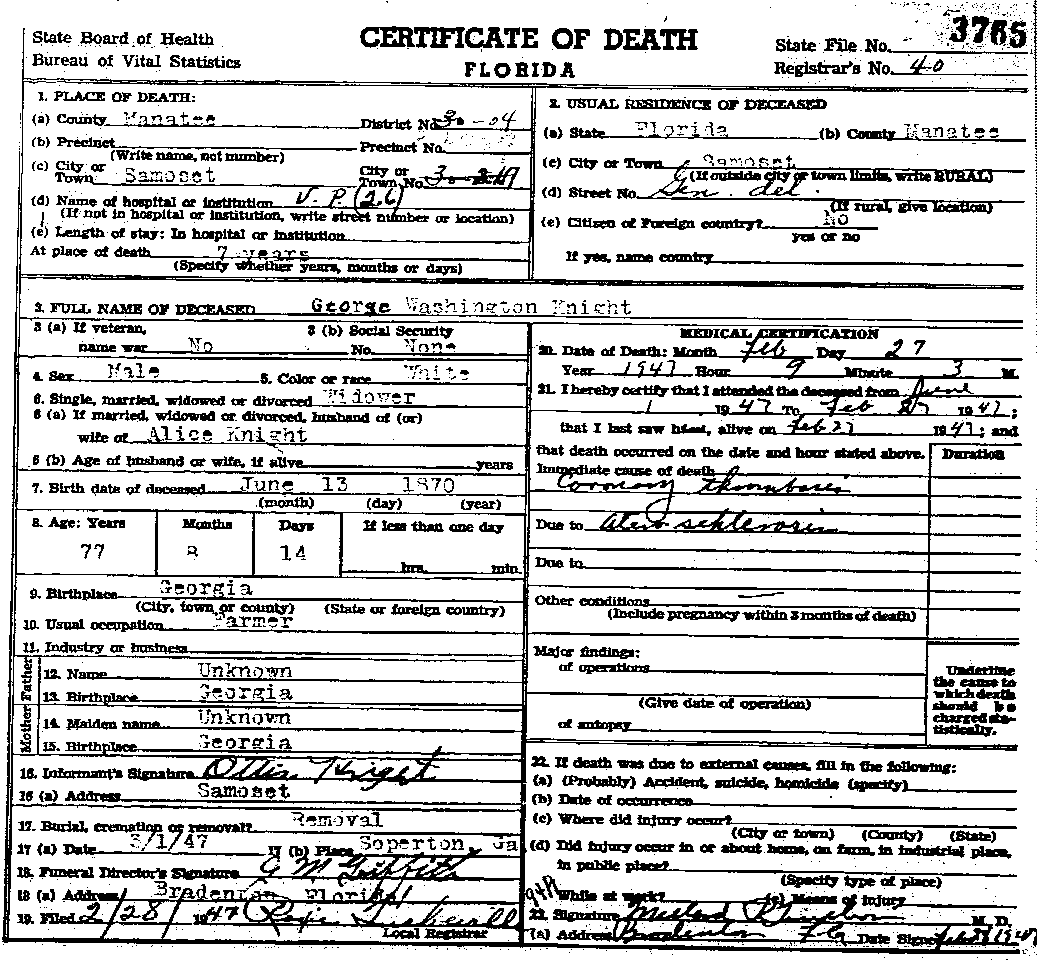 3765
State Board of Health
CERTIFICATE OF DEATH
State File No.
Bureau of Vital Statistics
FLORIDA
Registrar's No. 40
1. PLACE OF DEATH:
(a) County Manatee District No. -04
(b) Precinct Precinct No.
(Write name, not number)
(c) City or Town Samoset City or Town No.
(d) Name of hospital or institution V. P. (26)
(If not in hospital or institution, write street number or location)
(e) Length of stay: In hospital or institution
At place of death 7 years
(Specify whether years, months or days)
2. USUAL RESIDENCE OF DECEASED
(a) State Florida (b) County Manatee
(c) City or Town Samoset
(If outside city or town limits, write RURAL)
(d) Street No. Gen. del.
(If rural, give location)
(e) Citizen of Foreign country? No
yes or no
If yes, name country
3. FULL NAME OF DECEASED George Washington Knight
3 (a) If veteran, name war No
3 (b) Social Security No. None
4. Sex Male 5. Color or race White
6. Single, married, widowed or divorced Widower
6 (a) If married, widowed or divorced, husband of (or)
wife of Alice Knight
6 (b) Age of husband or wife, if alive years
7. Birth date of deceased June 13 1870
(month) (day) (year)
8. Age: Years Months Days If less than one day
77 8 14 hrs. min.
9. Birthplace Georgia
(City, town or county) (State or foreign country)
10. Usual occupation Farmer
11. Industry or business
Father
12. Name Unknown
13. Birthplace Georgia
Mother
14. Maiden name Unknown
15. Birthplace Georgia
16. Informant's Signature Ottis
16 (a) Address Samoset
17. Burial, cremation or removal? Removal
17 (a) Date 3/1/47 17 (b) Place Soperton, Ga
18. Funeral Director's Signature G M Griffith
18 (a) Address Bradenton Florida
19. Filed 2/28/1947
Local Registrar
MEDICAL CERTIFICATION
20. Date of Death: Month Feb Day 27
Year 1947 Hour 9 Minute 3 M.
21. I hereby certify that I attended the deceased from June
1 1947 To Feb 27 1947;
that I last saw him, alive on Feb 27 1947; and
that death occurred on the date and hour stated above.
Duration
Immediate cause of death
Coronary thrombosis
Due to
Due to
Other conditions —
(Include pregnancy within 3 months of death)
Major findings:
of operations
(Give date of operation)
of autopsy
Underline
the cause to
which death
should be
charged sta-
tistically.
22. If death was due to external causes, fill in the following:
(a) (Probably) Accident, suicide, homicide (specify)
(b) Date of occurrence
(c) Where did injury occur?
(City or town) (County) (State)
(d) Did injury occur in or about home, on farm, in industrial place,
in public place?
(Specify type of place)
While at work? (e) Means of injury
23. Signature M. D.
(a) Address Bradenton Fla Date Signed